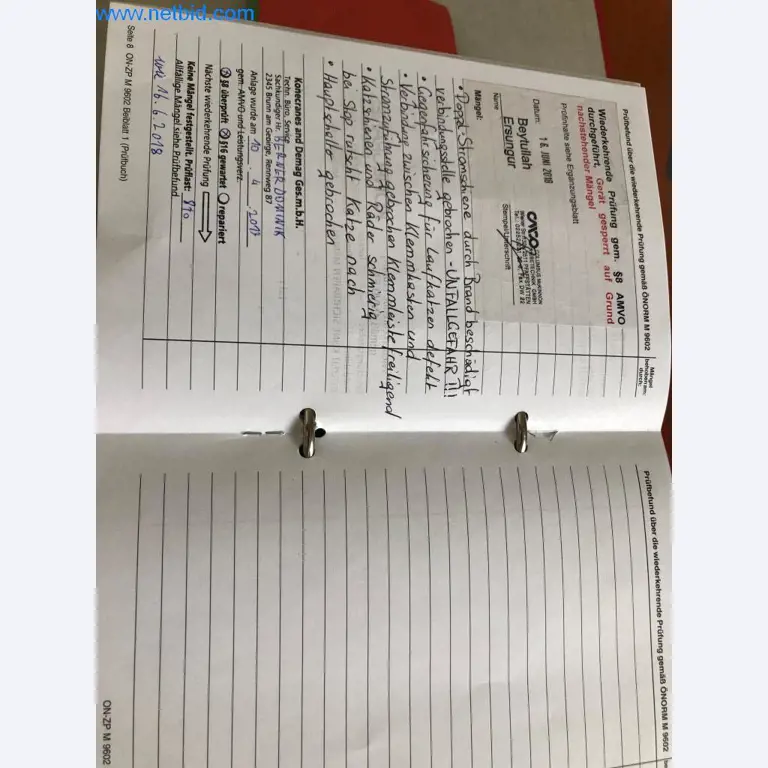 www.netbid.com
Prüfbefund über die wiederkehrende Prüfung gemäß ÖNORM M 9602
Mängel
behoben am:
durch:
Wiederkehrende Prüfung gem. §8 AMVO
durchgeführt, Gerät gesperrt auf Grund
nachstehender Mängel
Prüfinhalte siehe Ergänzungsblatt
Datum: 18. JUNI 2018
Beytullah
Ersungur
Name
Stempel/Unterschrift
Mängel:
• Doppel-Stromschiene durch Brand beschädigt
verbindungsstelle gebrochen - UNFALLGEFAHR!!!
• Gegenfahrsicherung für Laufkatzen defekt
• Verbindung zwischen Klemmkasten und
Stromzuführung gebrochen Klemmleiste freiliegend
• Katzschienen und Räder schmierig
bei Stop rutscht Katze nach
• Hauptschalter gebrochen
Konecranes and Demag Ges.m.b.H.
Techn. Büro, Service
Sachkundiger Hr. BERNER DOMINIK
2345 Brunn am Gebirge, Rennweg 87
Anlage wurde am 10 4 2017
gem. AMVO und Leistungsverz.
§8 überprüft §16 gewartet repariert
Nächste wiederkehrende Prüfung
Keine Mängel festgestellt. Prüflast:
Allfällige Mängel siehe Prüfbefund
16.6.2018
Seite 8 ON-ZP M 9602 Beiblatt 1 (Prüfbuch)
Prüfbefund über die wiederkehrende Prüfung gemäß ÖNORM M 9602
ON-ZP M 9602